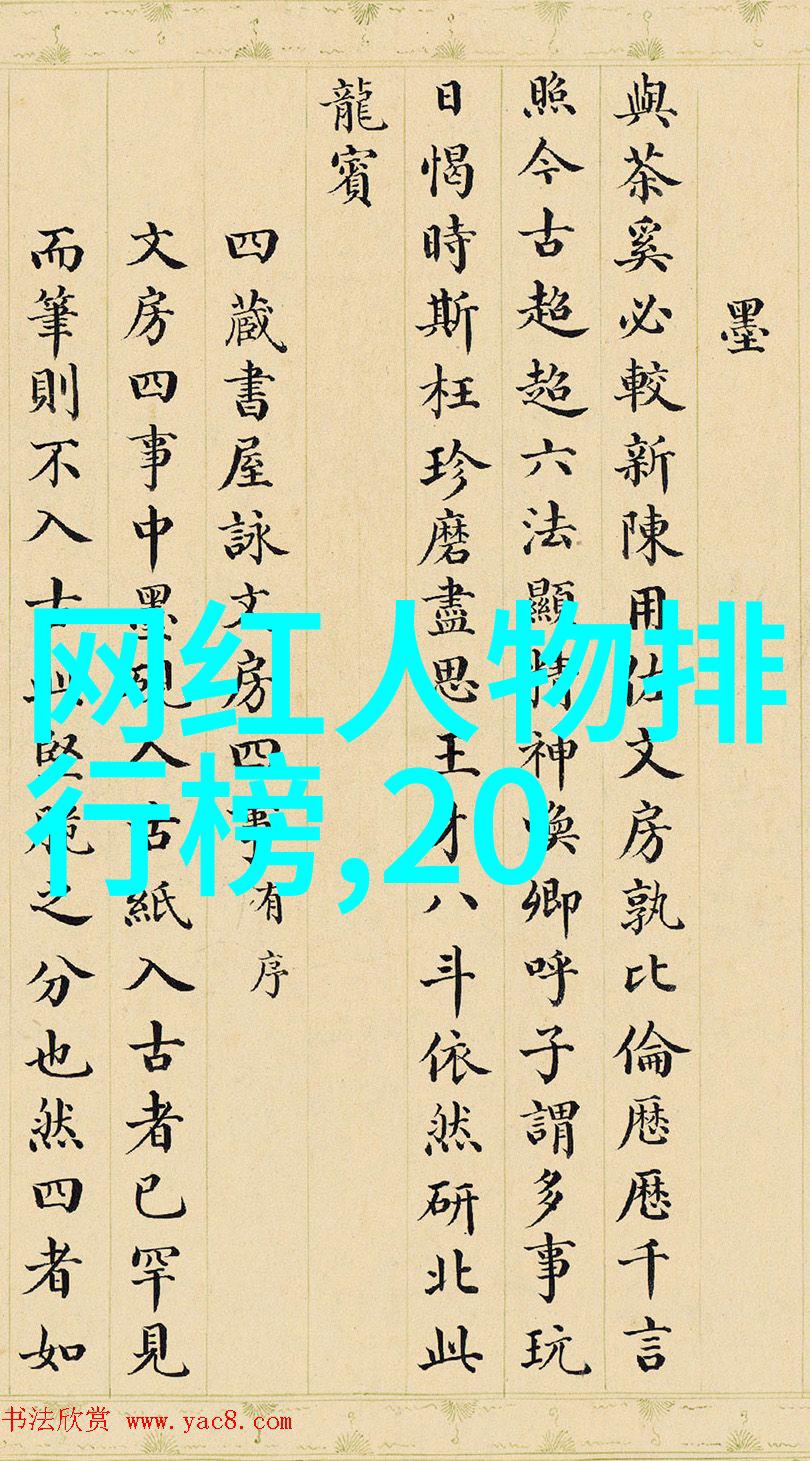 墨
與茶奚必較新陳用佐文房孰比倫歷歷千言
照今古超超六法顯精神喚卿呼子謂多事玩
日愒時斯枉珍磨盡思王才八斗依然研北此
龍賓
四蔵書屋詠文房四事有序
文房四事中墨則入古紙入古者已罕見
而筆則不入古與堅脆之分也然四者如
网红人物排
行榜,20
书法欣赏 www.yac8.com